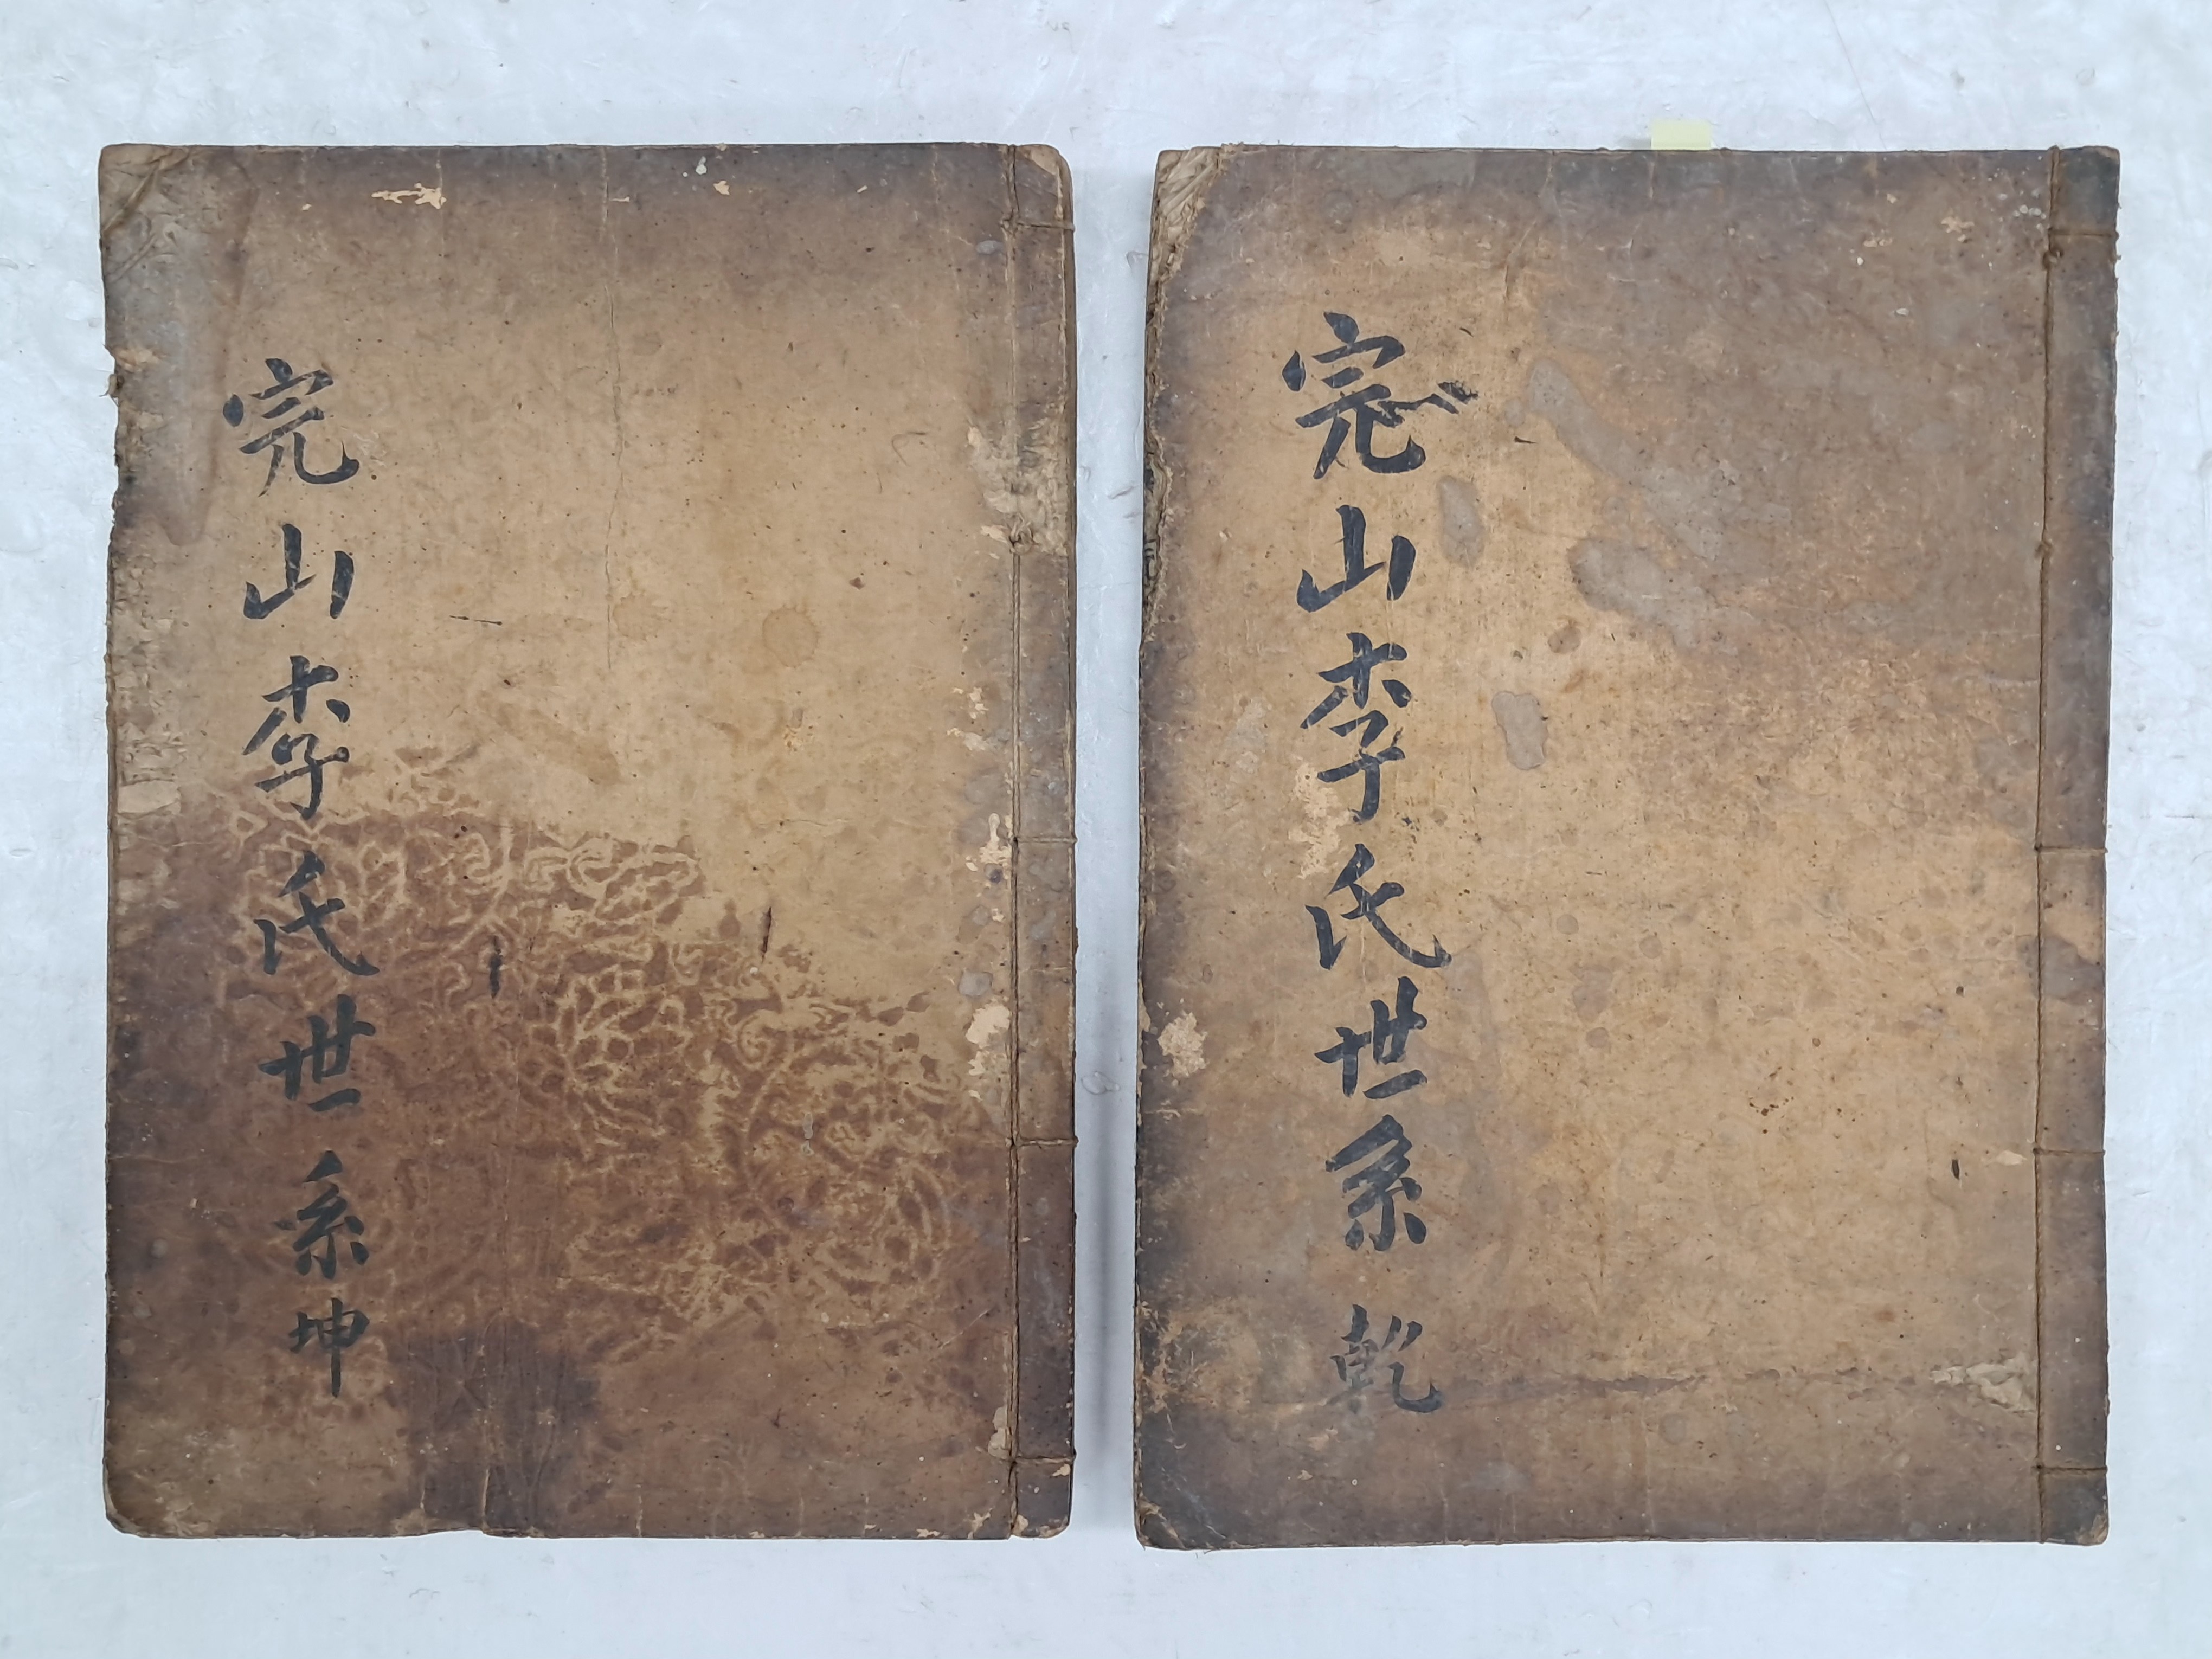 完山李氏世系 乾
完山李氏世系 坤